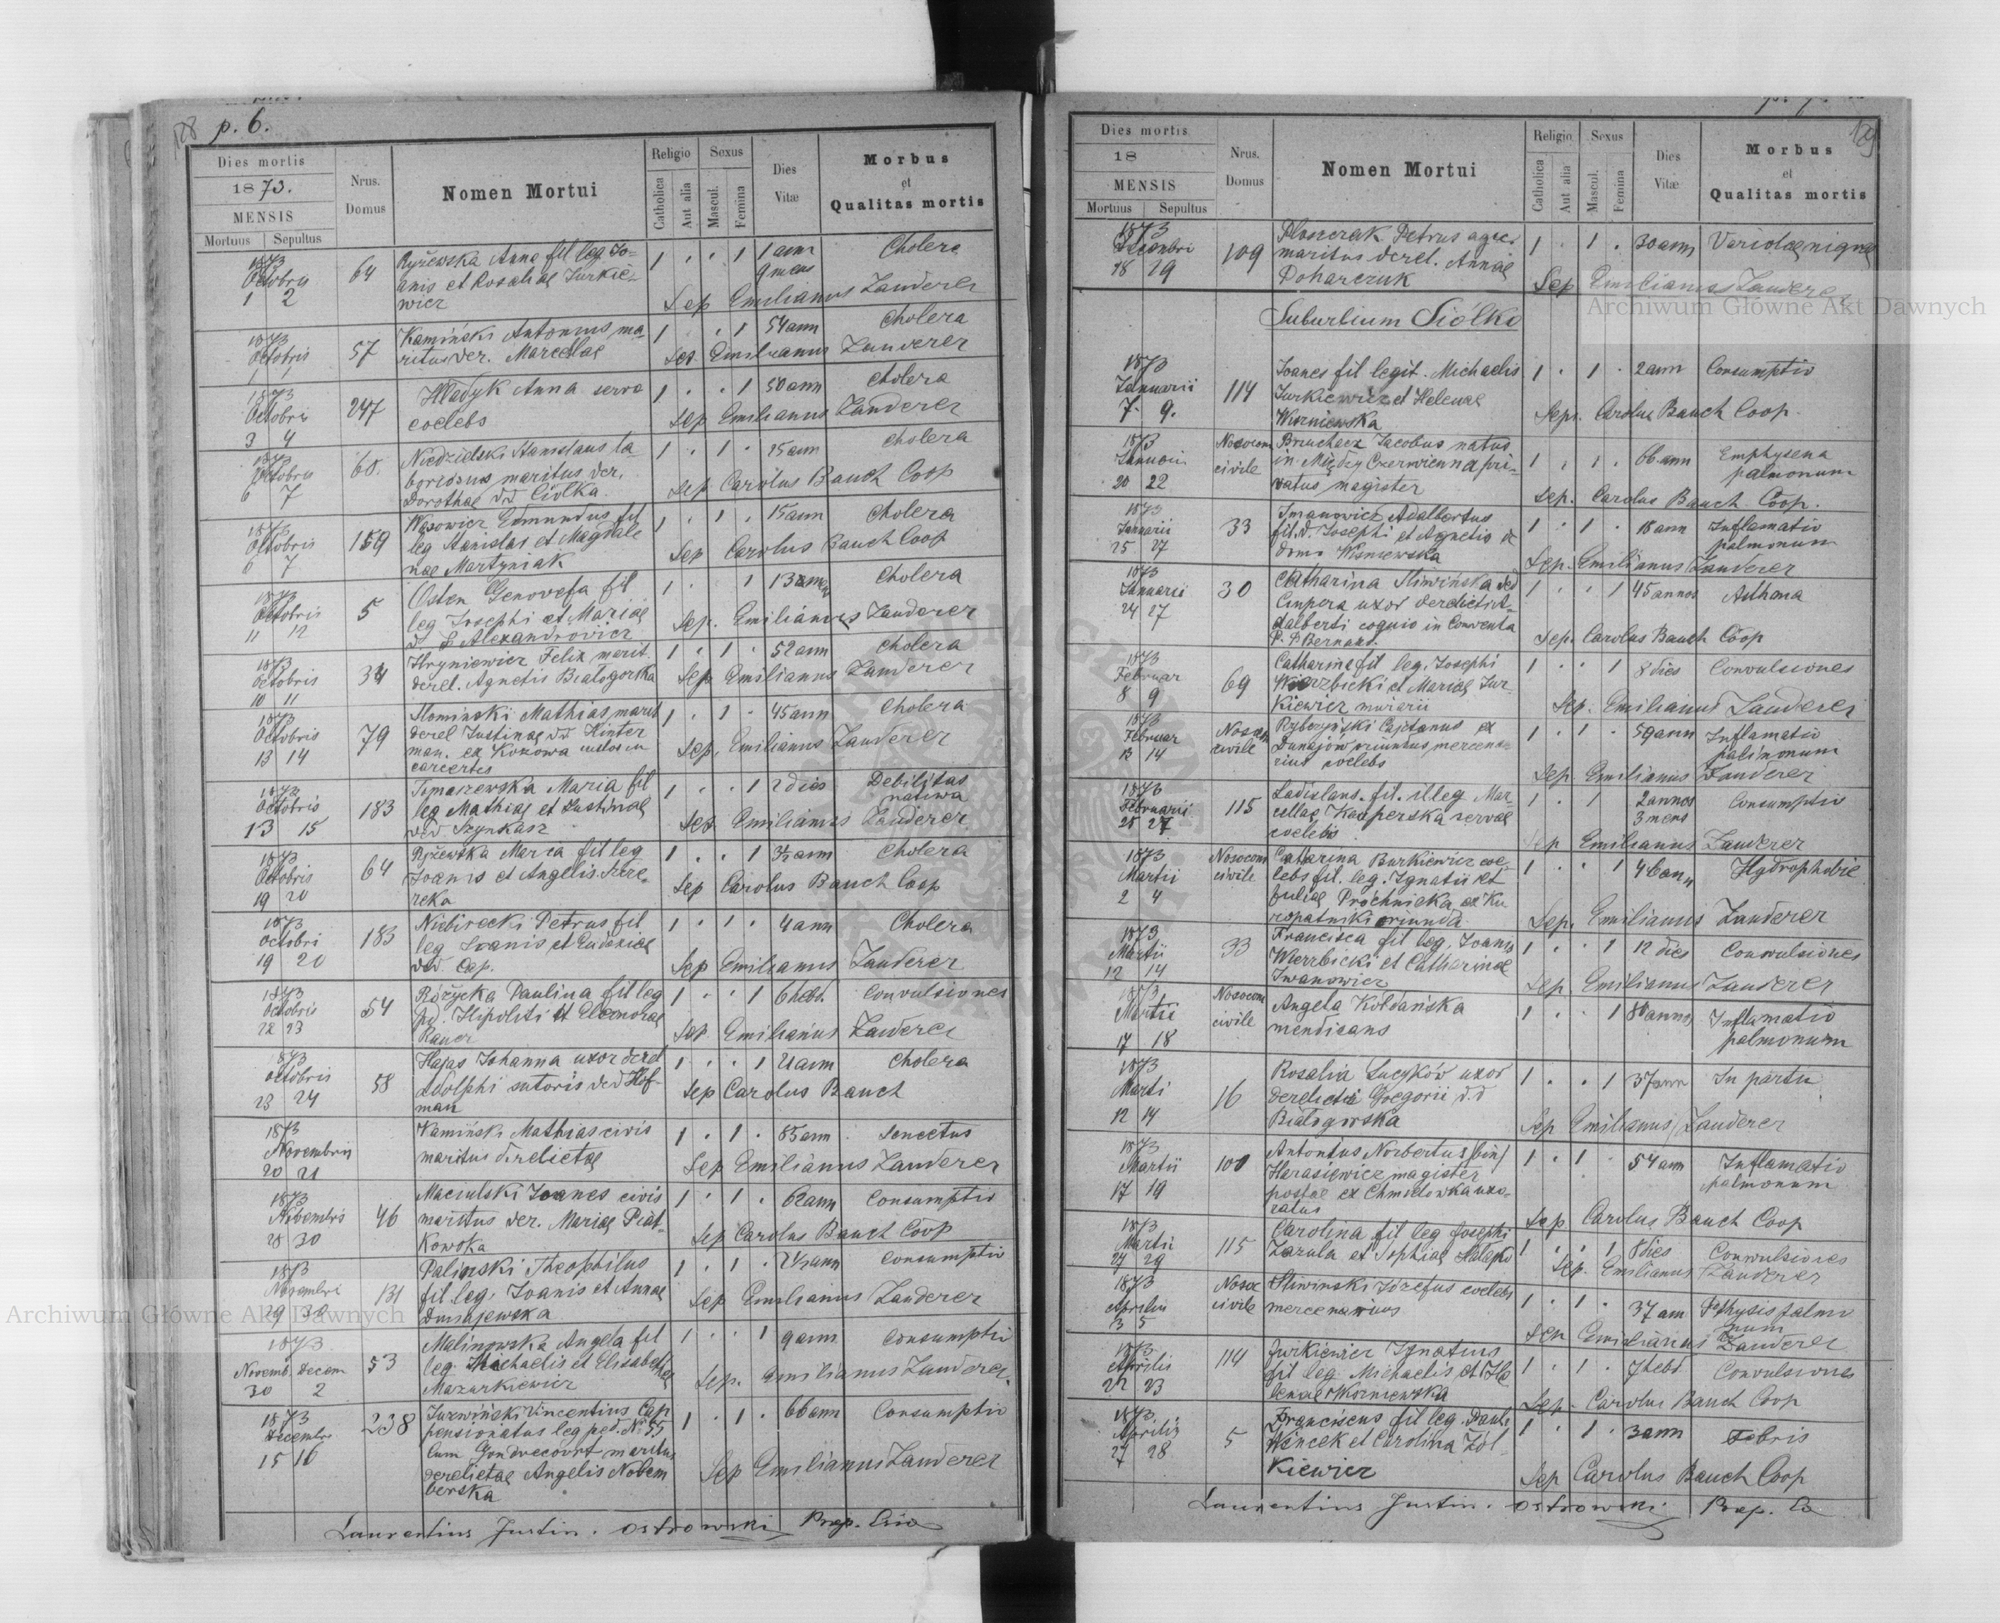 128 p. 6.
Dies mortis
1873.
MENSIS
Mortuus Sepultus
Nrus. Domus
Nomen Mortui
Religio
Catholica Aut alia
Sexus
Mascul. Femina
Dies Vitæ
Morbus et Qualitas mortis
1873 Octobris 1 2 64 Ryżewska Anna fil leg Jo- 1 . . 1 1 ann 9 mens Cholera
anis et Rosaliae Jurkie-
wicz Sep Emilianus Zauderer
1873 Octobris 1 1 57 Kamiński Antonius ma- 1 . . 1 54 ann Cholera
ritus der. Marcellae Sep Emilianus Zauderer
1873 Octobris 3 4 247 Hladyk Anna serva 1 . . 1 50 ann Cholera
coelebs Sep Emilianus Zauderer
1873 Octobris 6 7 60. Niedzielski Stanislaus la 1 . 1 . 25 ann Cholera
boriosus maritus der.
Dorotheae de d Ciolka Sep Carolus Bauch Coop
1873 Octobris 6 7 159 Wąsowicz Edmundus fil 1 . 1 . 15 ann Cholera
leg Stanislai et Magdale
nae Martyniak Sep Carolus Bauch Coop
1873 Octobris 11 12 5 Osten Genovefa fil 1 . 1 13 Cholera
leg Josephi et Mariae
Alexandrowicz Sep. Emilianus Zauderer
1873 Octobris 10 11 34 Hryniewicz Felix marit. 1 . 1 . 52 ann Cholera
derel. Agnetis Białogorska Sep Emilianus Zauderer
1873 Octobris 13 14 79 Słominski Mathias marit 1 . 1 . 45 ann Cholera
derel Justinae dd Hinter
man. ex Kozowa custos in
carcertes Sep. Emilianus Zauderer
1873 Octobris 13 15 183 Tomaszewska Maria fil 1 . . 1 2 dies Debilitas nativa
leg Mathiae et Justinae
ded Szynkasz Sep Emilianus Zauderer
1873 Octobris 19 20 64 Ryżewska Maria fil leg 1 . . 1 3½ ann Cholera
Joanis et Angelis
Sep Carolus Bauch Coop
1873 Octobri 19 20 183 Niebirecki Petrus fil 1 . 1 . 4 ann Cholera
leg Joanis et Eudoxiae
ded Cap. Sep Emilianus Zauderer
1873 Octobris 22 23 54 Różycka Paulina fil leg 1 . . 1 6 hebd. Convulsiones
Hipoliti et Eleonorae
Hauer Sep Emilianus Zauderer
1873 Octobris 23 24 58 Hajas Johanna uxor derel 1 . . 1 21 ann Cholera
Adolphi sutoris ded Hof-
man Sep Carolus Bauch
1873 Novembris 20 21 Kamiński Mathias civis 1 . 1 . 85 ann . Senectus
maritus derelictae Sep Emilianus Zauderer
1873 Novembris 28 30 46 Maciulski Joanes civis 1 . 1 . 62 ann Consumptio
maritus der. Mariae Piąt-
kowska Sep Carolus Bauch Coop
1873 Novembri 29 30 131 Palinski Theophilus 1 . 1 . 2½ ann Consumptio
fil leg. Joanis et Annae
Dunajewska Sep Emilianus Zauderer
1873 Novemb. Decem 30 2 53 Malinowska Angela fil 1 . . 1 9 ann Consumptio
leg. Michaelis et Elisabethae
Mazurkiewicz Sep. Emilianus Zauderer.
1873 Decembri 15 16 238 Jurwiński Vincentius Cap 1 . 1 . 66 ann Consumptio
pensionatus leg ped. No 55
Cum Gondrecourt maritus
derelictae Angelis Nobem
berska Sep Emilianus Zauderer
Laurentius Justin. Ostrowski Prep.
129
Dies mortis
18
MENSIS
Mortuus Sepultus
Nrus. Domus
Nomen Mortui
Religio
Catholica Aut alia
Sexus
Mascul. Femina
Dies Vitæ
Morbus et Qualitas mortis
1873 Decembri 28 29 109 Ploszczak Petrus agric. 1 . 1 . 30 ann Variolae nigrae
maritus derel. Annae
Doharczuk Sep Emilianus Zauderer
Suburbium Siółko
1873 Januarii 7. 9. 114 Joanes fil legit. Michaelis 1 . 1 . 2 ann Consumptio
Jurkiewicz et Helenae
Wiszniewska Sep. Carolus Bauch Coop.
1873 Januarii 20 22 Nosocom civile Bruchacz Jacobus natus 1 . 1 . 66 ann Emphysena palmonum
in Między Czerwienna pri-
vatus magister Sep. Carolus Bauch Coop.
1873 Januarii 25 27 33 Jwanowicz Adalbertus 1 . 1 . 18 ann Inflamatio palmonum
fil. d. Josephi et Agnetis de
domo Wiśniewska Sep. Emilianus Zauderer
1873 Januarii 24 27 30 Catharina Sliwińska ded 1 . . 1 45 annos Asthma
Cmpera uxor derelicti A-
dalberti coquio in Conventa
P. P Bernard. Sep. Carolus Bauch Coop
1873 Februar 8 9 69 Catharina fil leg. Josephi 1 . . 1 8 dies Convulsiones
Wierzbicki et Mariae Jur-
kiewicz murarii Sep. Emilianus Zauderer
1873 Februar 12 14 Nosocom civile Rybczyński Cajetanus ex 1 . 1 . 59 ann Inflamatio palmonum
Dunajów oriuntus, mercena-
rius coelebs Sep Emilianus Zauderer
1873 Februarii 25 27 115 Ladislaus. fil. illeg Mar- 1 . 1 2 annos 3 mens Consumptio
cellae Kasperska servae
coelebis Sep Emilianus Zauderer
1873 Martii 2 4 Nosocom civile Catarina Burkiewicz coe- 1 . . 1 46 ann Hydrophobie
lebs fil. leg. Ignatii et
Juliae Próchnicka, ex Ku
ropatniki oriunda Sep. Emilianus Zauderer
1873 Martii 12 14 33 Francisca fil leg. Joanis 1 . . 1 12 dies Convulsiones
Wierzbicki et Catharinae
Iwanowicz Sep. Emilianus Zauderer
1873 Martii 17 18 Nosocom civile Angela Kołdańska 1 . . 1 80 annos Inflamatio palmonum
mendicans
1873 Marti 12 14 16 Rosalia Lucyków uxor 1 . . 1 37 ann In partu
derelicti Gregorii d.d
Białogorska Sep Emilianus Zauderer
1873 Martii 17 19 100 Antonius Norbertus (bin) 1 . 1 . 54 ann Inflamatio palmonum
Harasiewicz magister
postae ex Chmielowka uxo-
ratus Sep Carolus Bauch Coop
1873 Martii 27 29 115 Carolina fil leg Josephi 1 . . 1 8 dies Convulsiones
Zazula et Sophiae Sep. Emilianus Zauderer
1873 Aprilis 3 5 Nosoc civile Sliwinski Józefus coelebs 1 . 1 . 37 ann Pthysis palmo num
mercenarius Sep Emilianus Zauderer
1873 Aprilis 22 23 114 Jurkiewicz Ignatius 1 . 1 . 7 hebd. Convulsiones
fil leg Michaelis et He
lenae Wiszniewska Sep. Carolus Bauch Coop
1873 Aprilis 27 28 5 Franciscus fil leg. Pauli 1 . 1 . 3 ann Febris
Wincek et Carolina Żół-
kiewicz Sep Carolus Bauch Coop
Laurentius Justin. Ostrowski Prep.
Archiwum Główne Akt Dawnych
Archiwum Główne Akt Dawnych